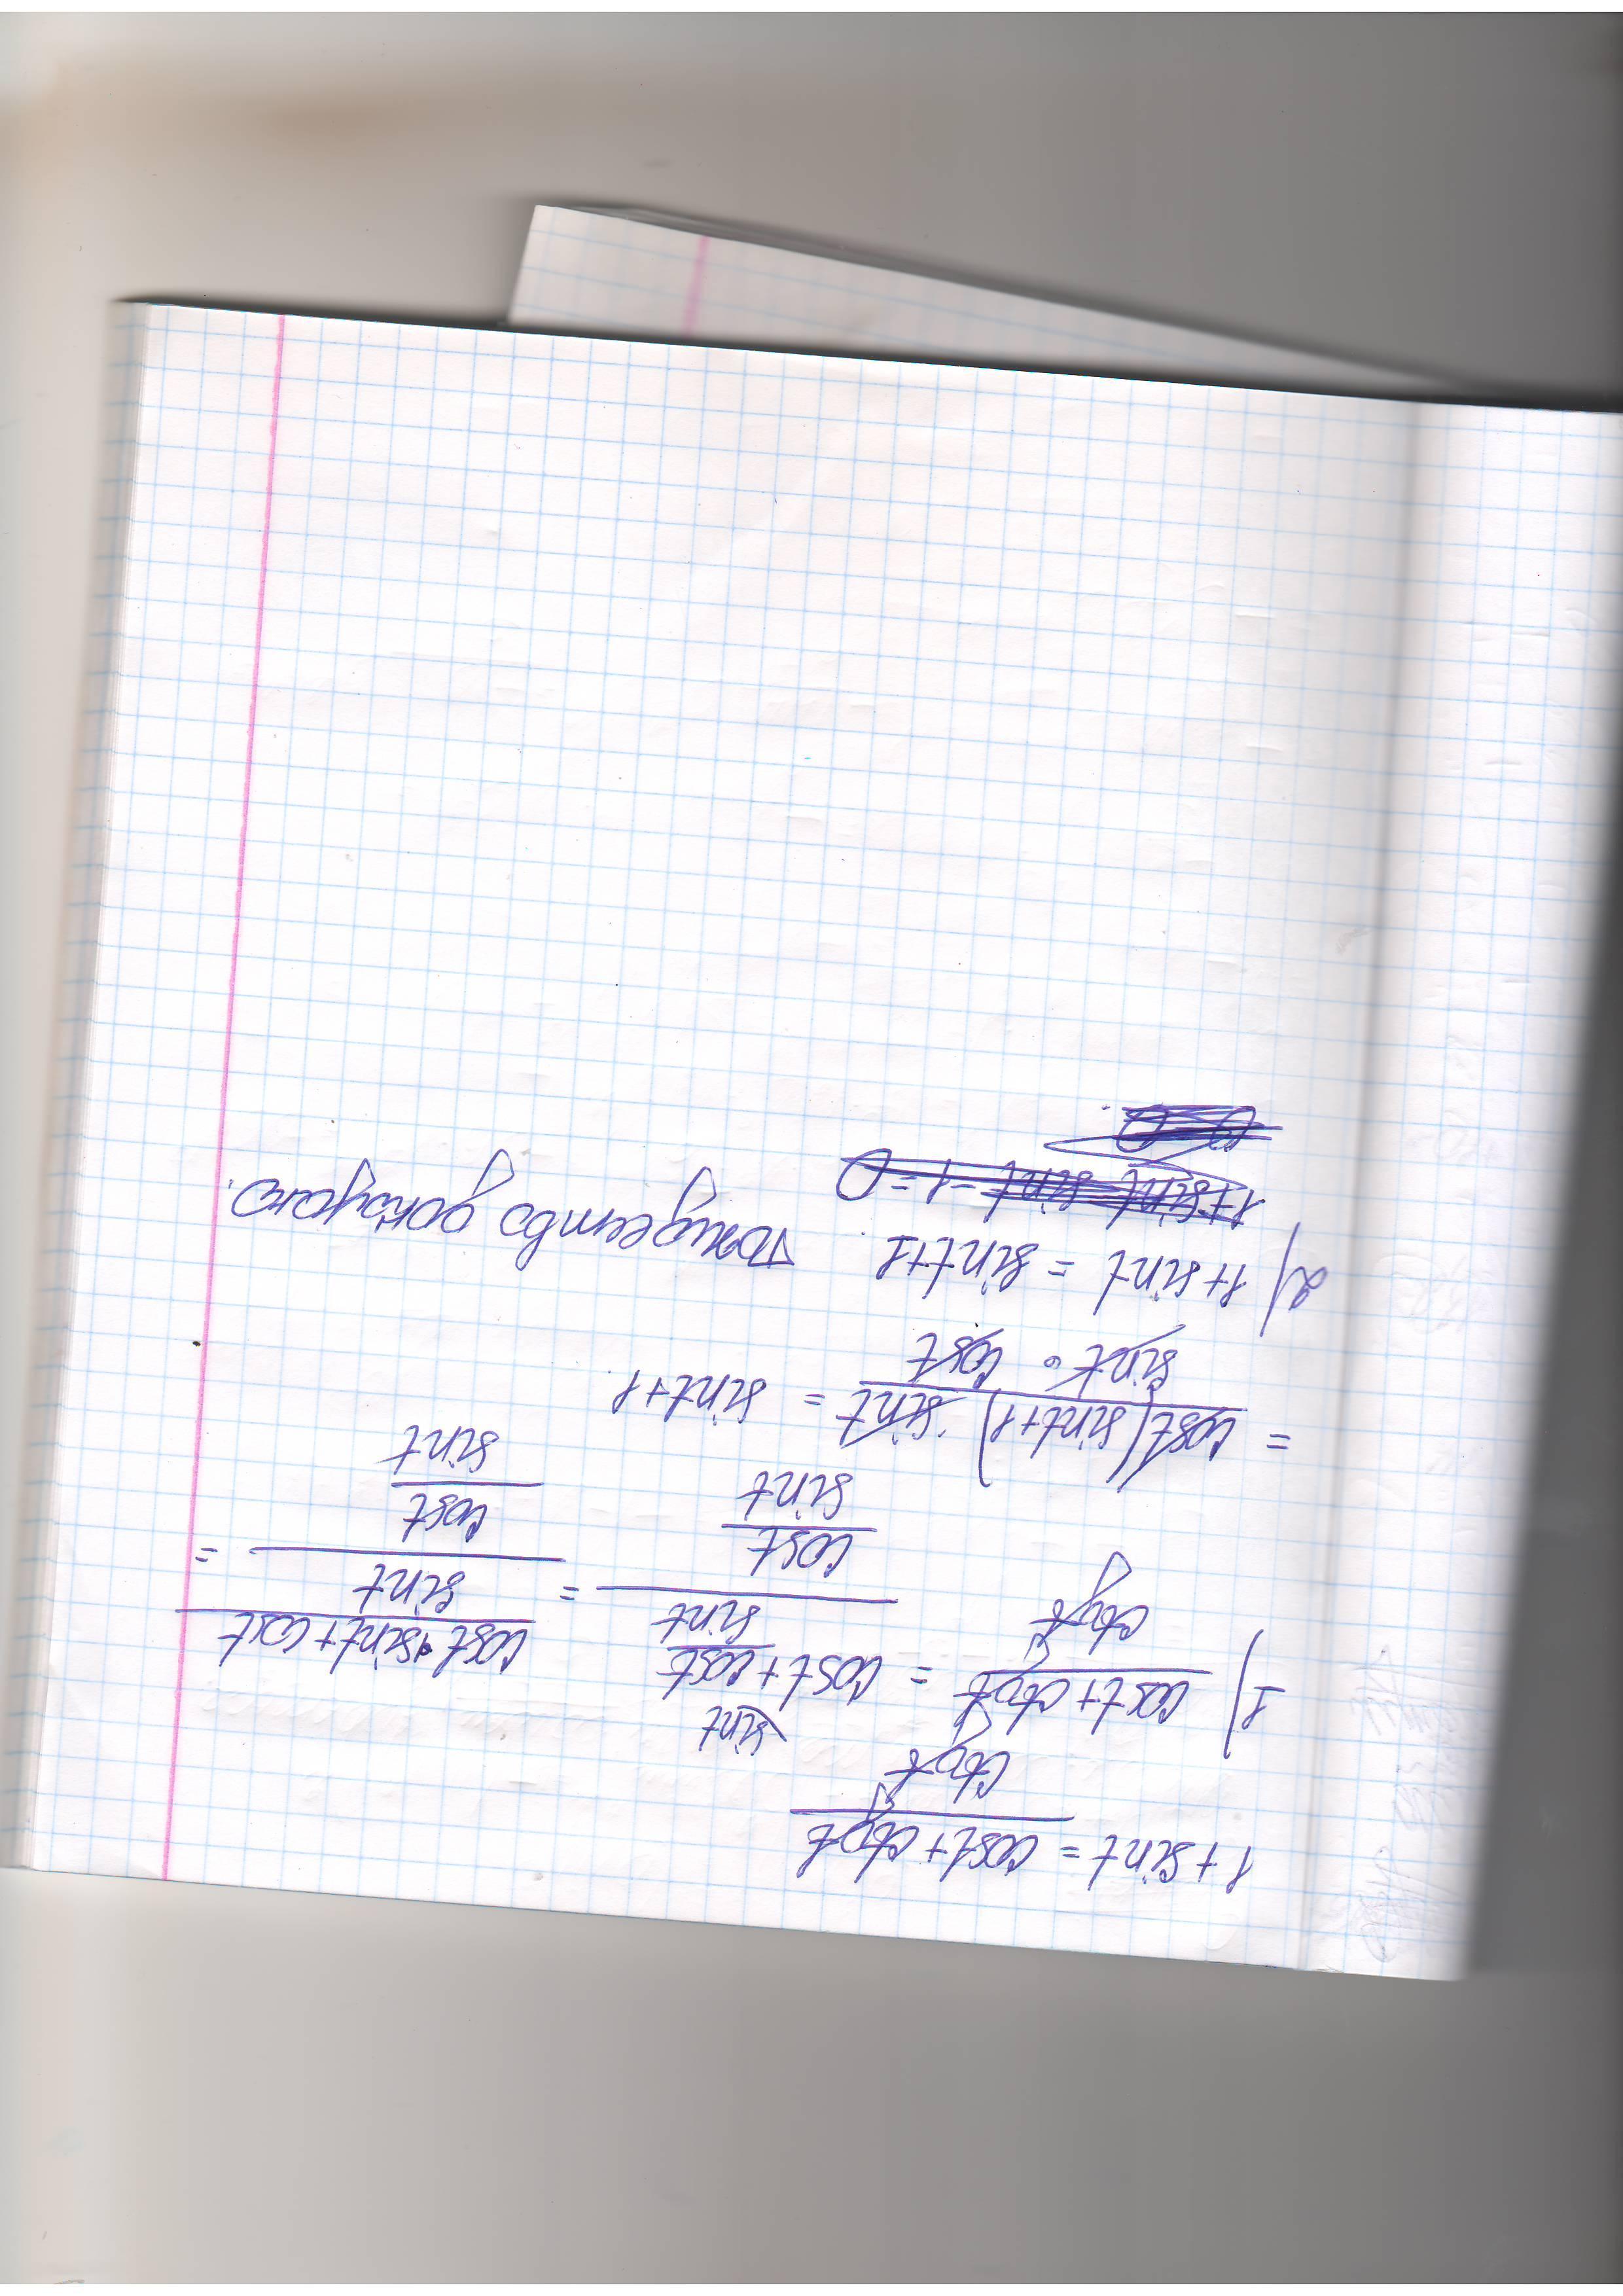 1+sint = cost+ctgt / ctgt
1) cost+ctgt / ctgt = cost + cost/sint / cost/sint = cost·sint+cost / sint / cost / sint =
= cost(sint+1)·sint / sint·cost = sint+1
2) 1+sint = sint+1. Тождество доказано.
1+sint-sint-1=0